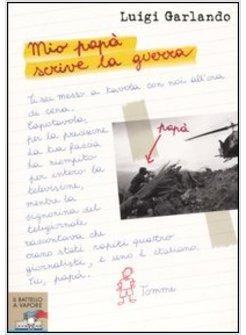 Luigi Garlando
Mio papà
scrive la guerra
Ti sei messo a tavola con noi all'ora
di cena.
Capotavola,
per la precisione
La tua faccia
ha riempito
per intero la
televisione,
mentre la
signorina del
telegiornale
raccontava che
erano stati rapiti quattro
giornalisti, e uno è italiano.
Tu, papà.
papà
Tommi
IL BATTELLO
A VAPORE